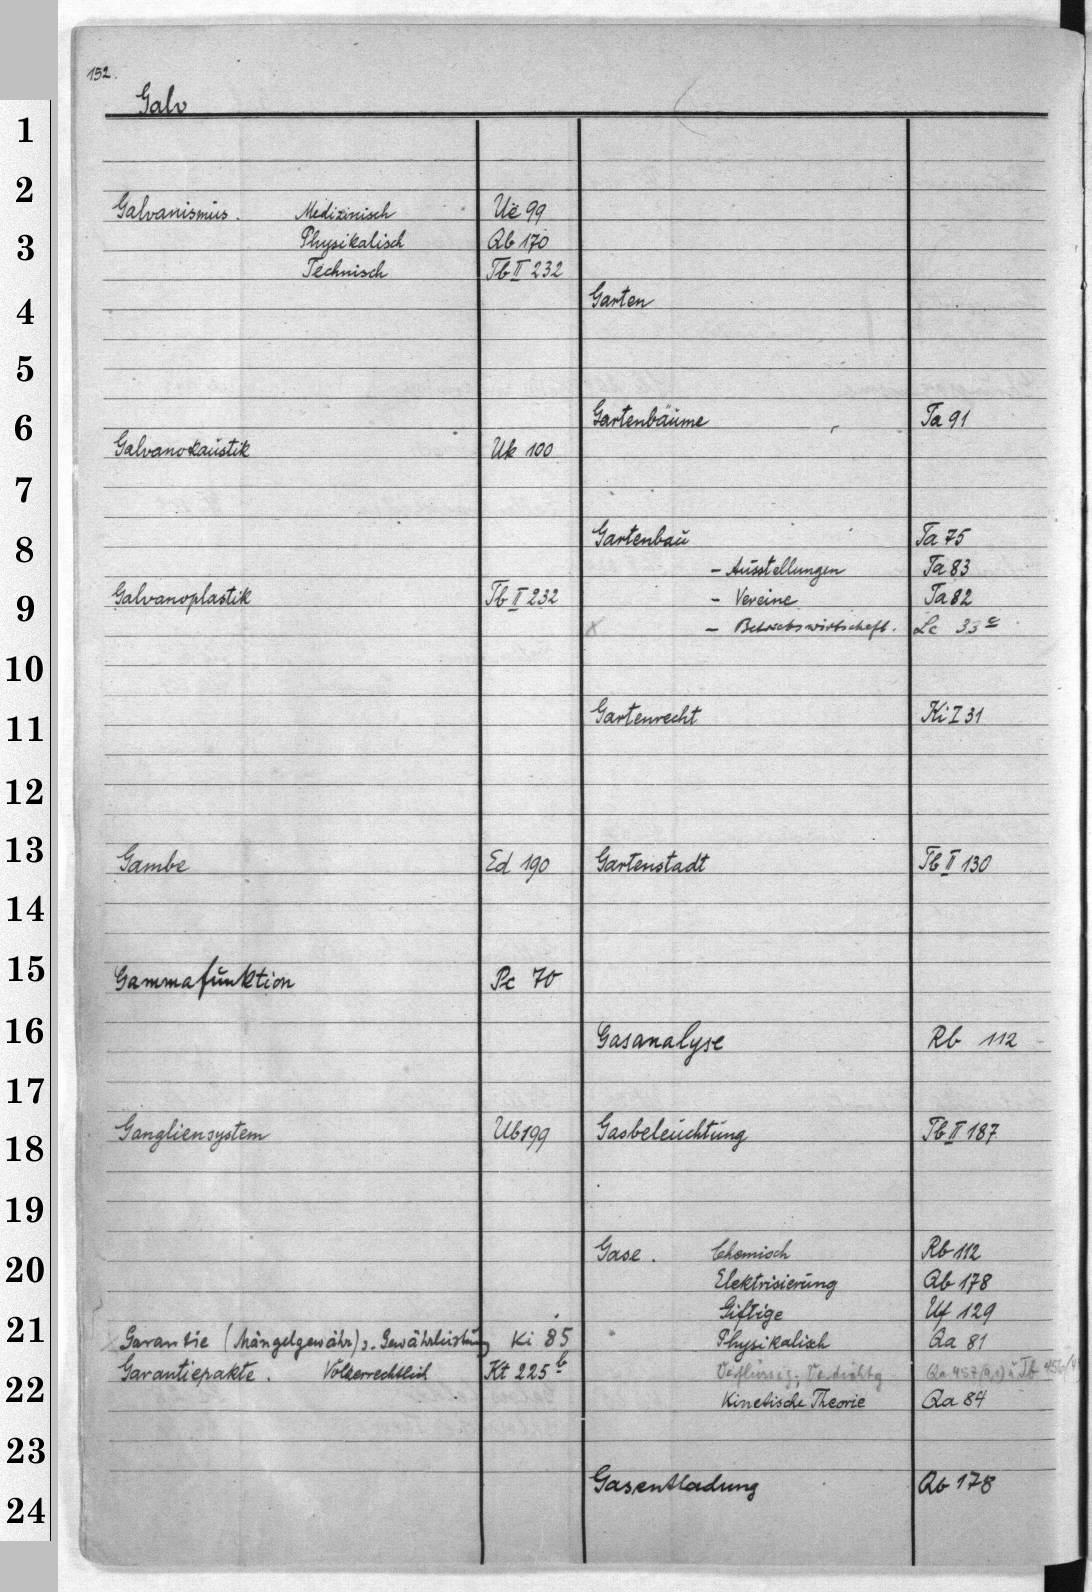 152.
Galv
1
2
3
4
5
6
7
8
9
10
11
12
13
14
15
16
17
18
19
20
21
22
23
24
Galvanismus. Medizinisch Ue 99
Physikalisch Qb 170
Technisch Tb II 232
Galvanokaustik Uk 100
Galvanoplastik Tb II 232
Gambe Ed 190
Gammafunktion Pc 70
Gangliensystem Ub 199
Garantie (Mängelgewähr) s. Gewährleistung Ki 85
Garantiepakte. Völkerrechtlich Kt 225 b
Garten
Gartenbäume Ta 91
Gartenbau Ta 75
- Ausstellungen Ta 83
- Vereine Ta 82
- Betriebswirtschaft. Lc 33 c
Gartenrecht Ki I 31
Gartenstadt Tb II 130
Gasanalyse Rb 112
Gasbeleuchtung Tb II 187
Gase. Chemisch Rb 112
Elektrisierung Qb 178
Giftige Uf 129
Physikalisch Qa 81
Kinetische Theorie Qa 84
Gasentladung Qb 178